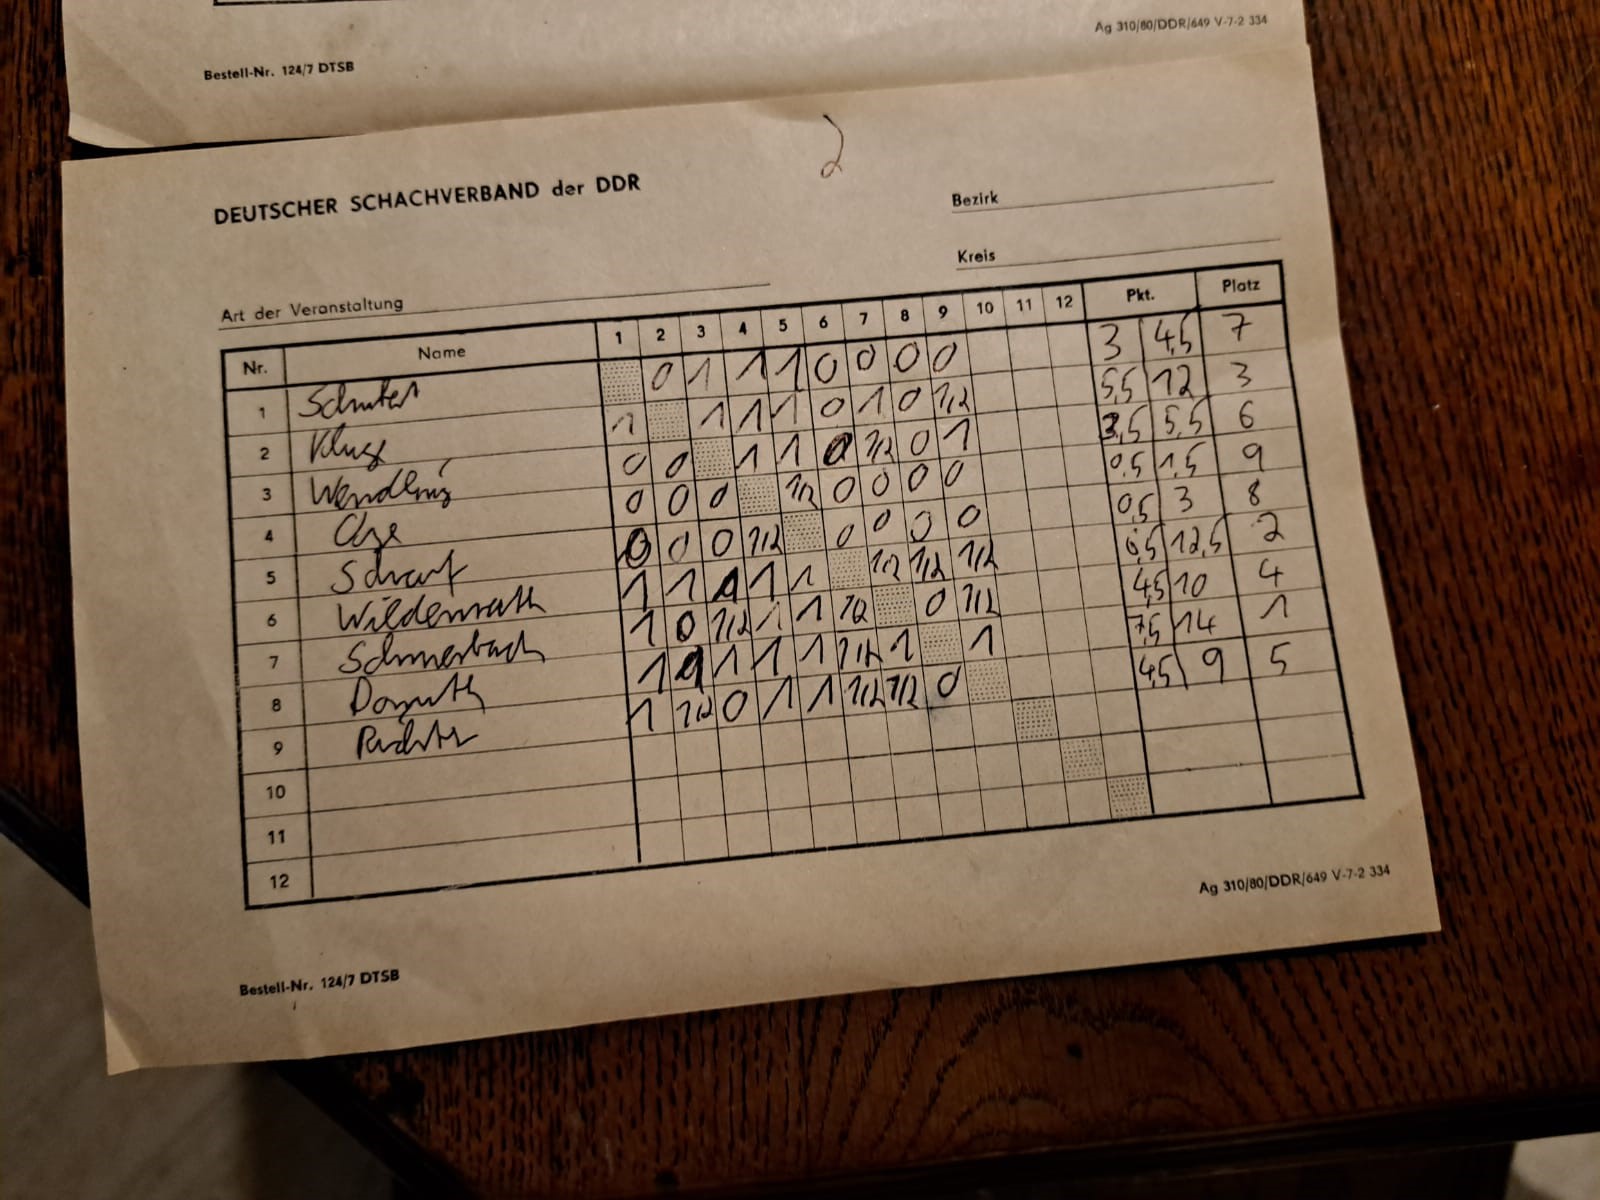 Ag 310/80/DDR/649 V-7-2 334
Bestell-Nr. 124/7 DTSB
2
DEUTSCHER SCHACHVERBAND der DDR
Bezirk
Kreis
Art der Veranstaltung
Nr. Name 1 2 3 4 5 6 7 8 9 10 11 12 Pkt. Platz
1 0 1 1 1 0 0 0 0 3 4,5 7
2 Kluge 1 1 1 1 0 1 0 1/2 5,5 12 3
3 Wendling 0 0 1 1 0 1/2 0 1 3,5 5,5 6
4 0 0 0 1/2 0 0 0 0 0,5 1,5 9
5 Scharf 0 0 0 1/2 0 0 0 0 0,5 3 8
6 Wildenrath 1 1 1 1 1 1/2 1/2 1/2 6,5 12,5 2
7 Schmerbach 1 0 1/2 1 1 1/2 0 1/2 4,5 10 4
8 1 1 1 1 1 1/2 1 1 7,5 14 1
9 Richter 1 1/2 0 1 1 1/2 1/2 0 4,5 9 5
10
11
12
Ag 310/80/DDR/649 V-7-2 334
Bestell-Nr. 124/7 DTSB